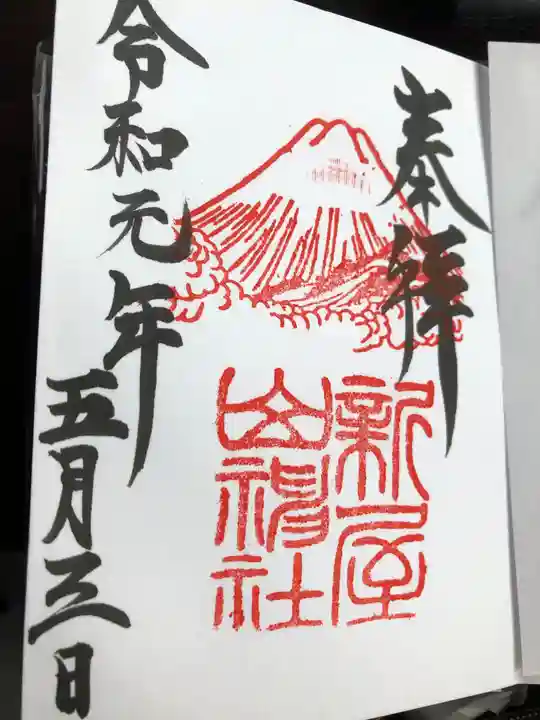 奉拝
新屋
山神社
令和元年
五月三日